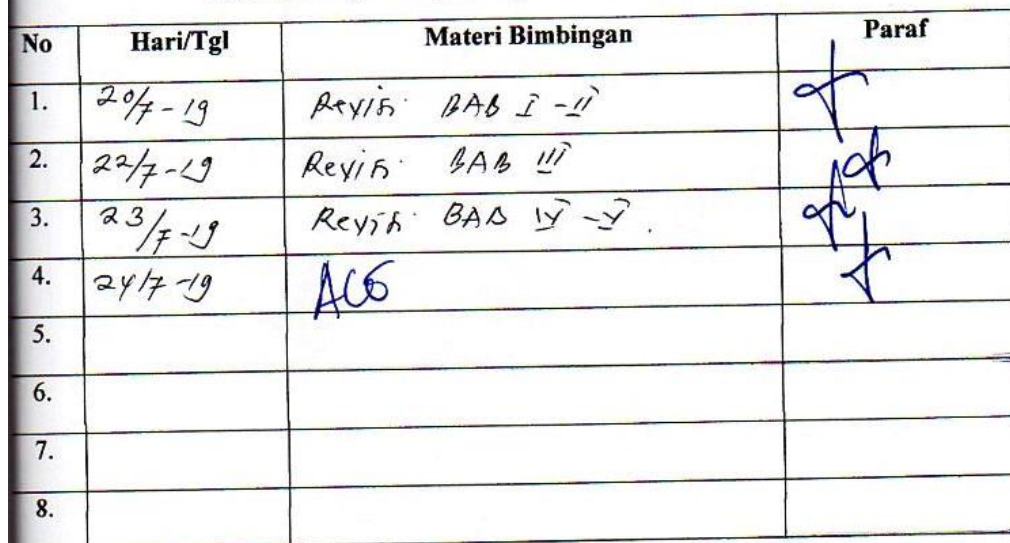 No Hari/Tgl Materi Bimbingan Paraf
1. 20/7-19 Revisi BAB I - II
2. 22/7-19 Revisi BAB III
3. 23/7-19 Revisi BAB IV - V.
4. 24/7-19
5.
6.
7.
8.